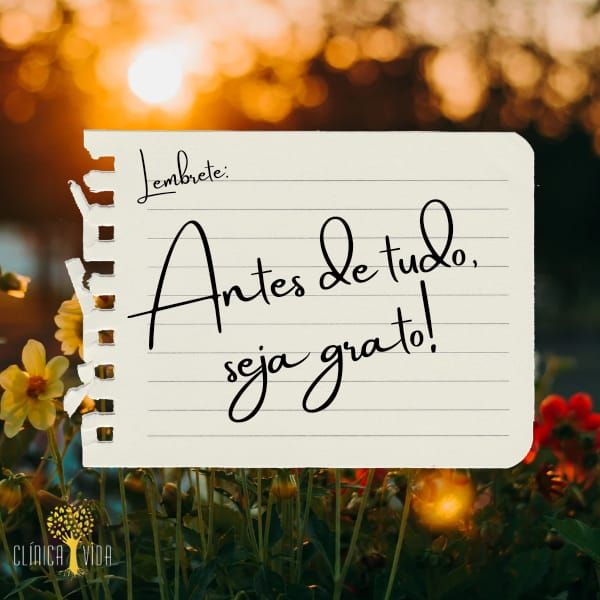 Lembrete:
Antes de tudo,
seja grato!
CLÍNICA VIDA